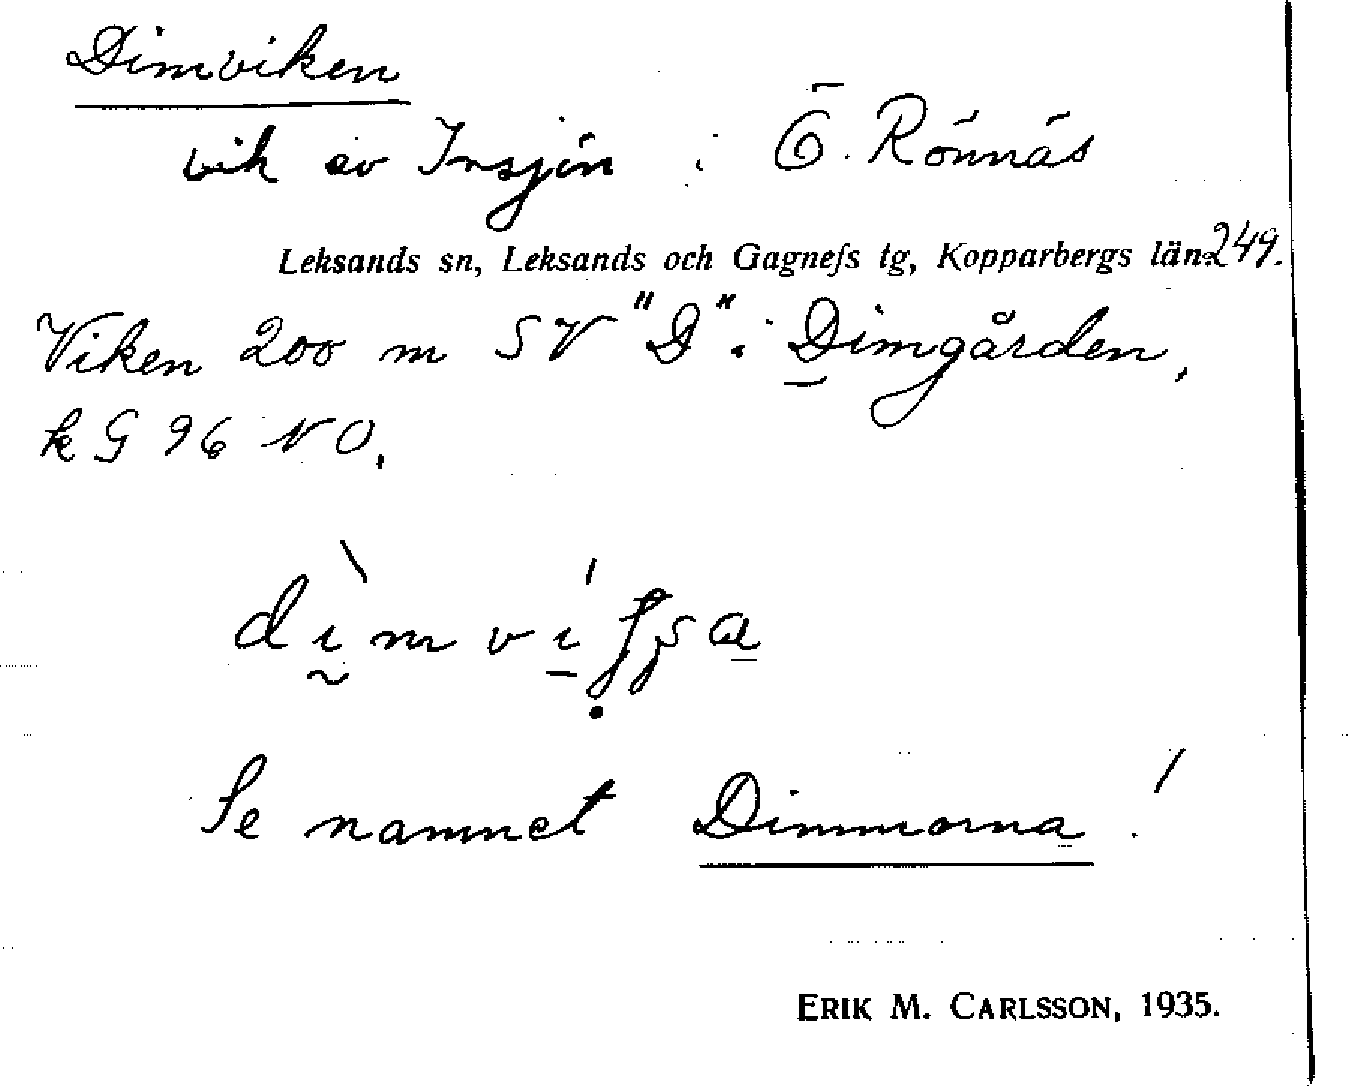 Dimviken
vik av Insjön i Ö. Rönnäs
Leksands sn, Leksands och Gagnefs tg, Kopparbergs län. 249.
Viken 200 m SV "D" i Dimgården,
k G 96 NO.
Se namnet Dimmorna!
ERIK M. CARLSSON, 1935.